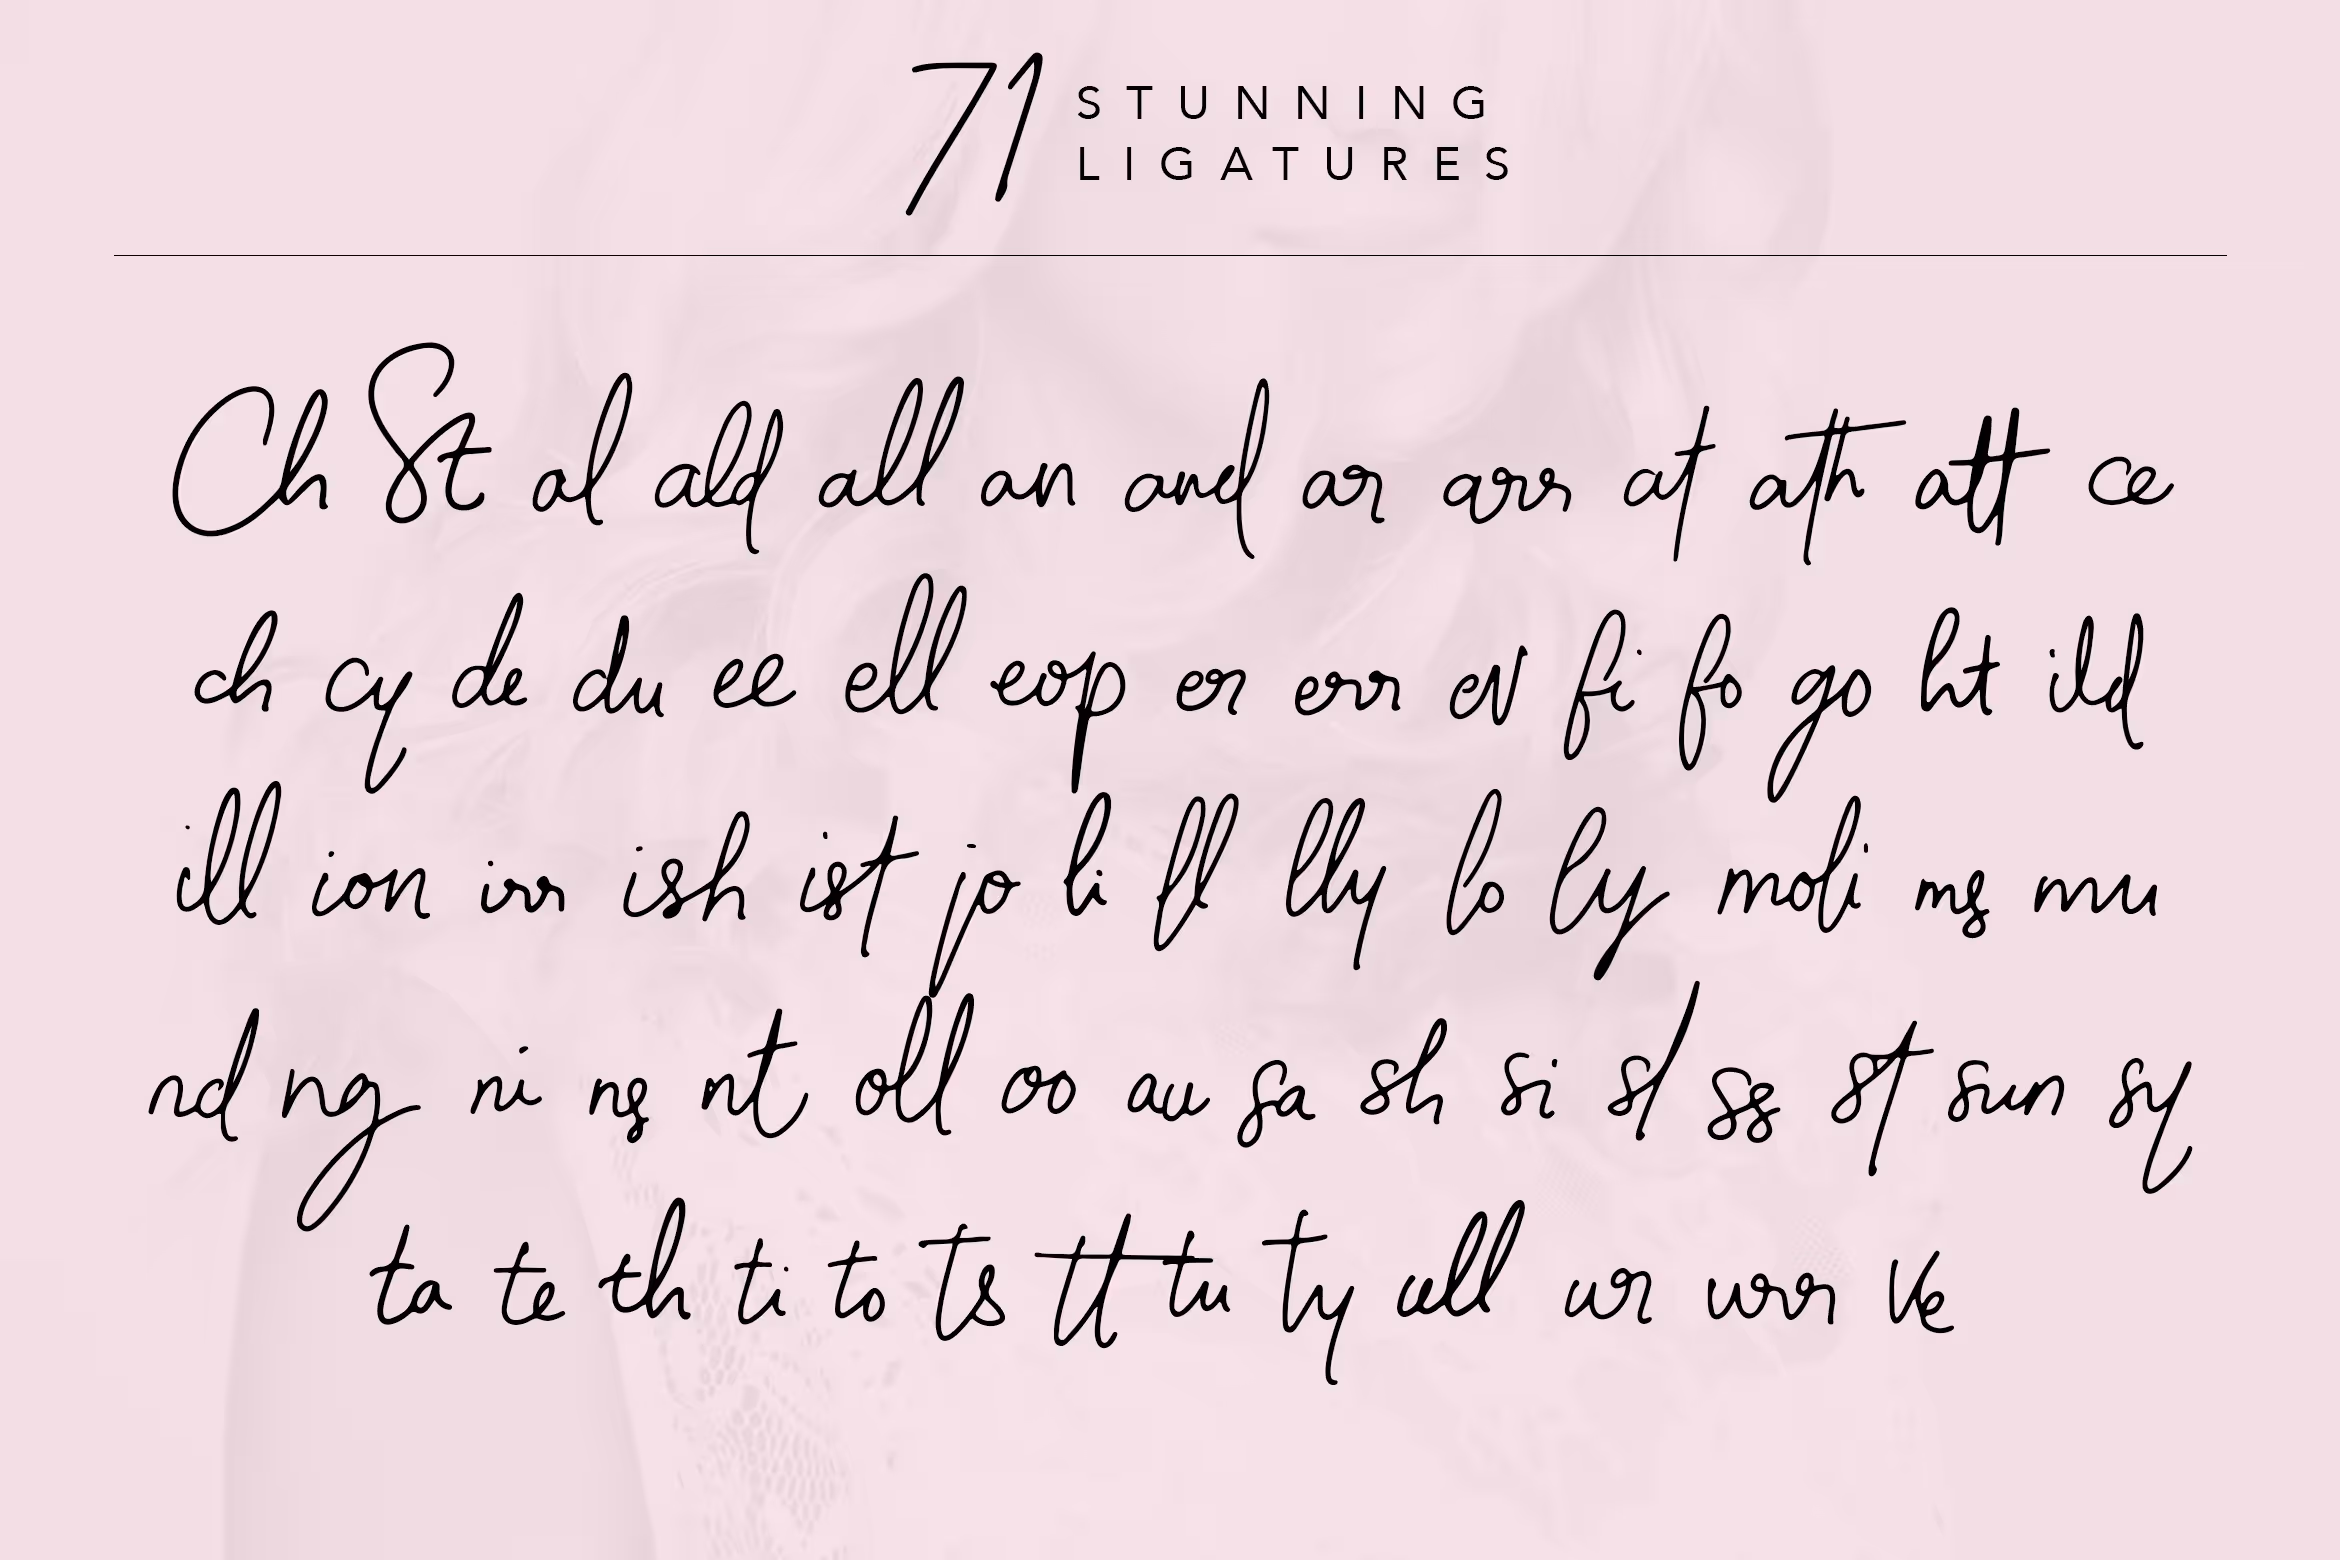 71 STUNNING
LIGATURES
Ch St al ald all an and ar arr at ath att ce
ch cy de du ee ell eop er err ev fi fo go ht ild
ill ion irr ish ist jo li ll lly lo ly moli ms mu
nd ng ni ns nt oll oo ou sa sh si sl ss st sun sy
ta te th ti to ts tt tu ty ull ur urr ve